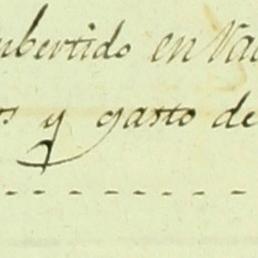 nbertido en Va
s y gasto de